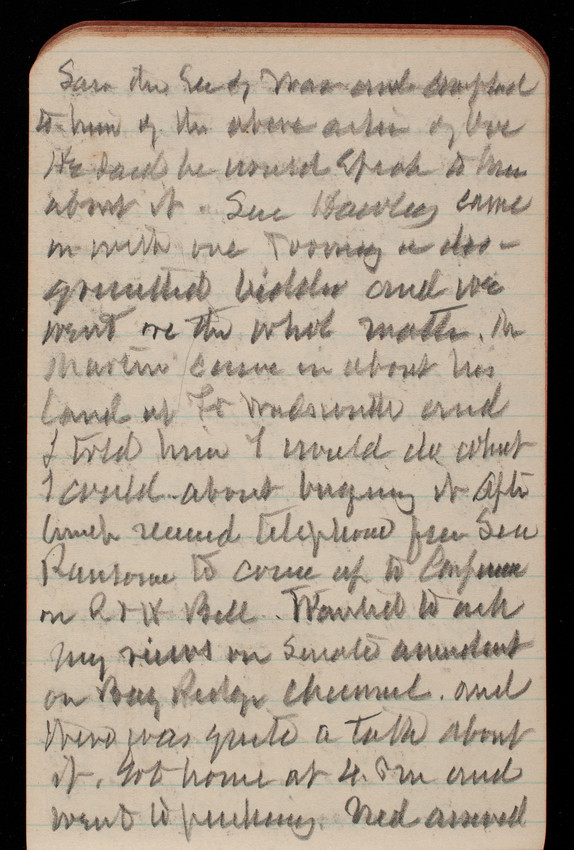 Saw the Sec of War and complained
to him of the above action of
He said he would speak to him
about it. Sen Hawley came
in with one a dis-
gruntled bidder and we
went over the whole matter. Mr
Martin came in about his
land at Ft Wadsworth and
I told him I would do what
I could about buying it After
lunch received telephone from Sen
Ransome to come up to Conference
on R & H Bill. Wanted to ask
my views on Senate amendment
on Bay Ridge Channel. and
there was quite a talk about
it. Got home at 4. PM and
went to packing. Ned arrived